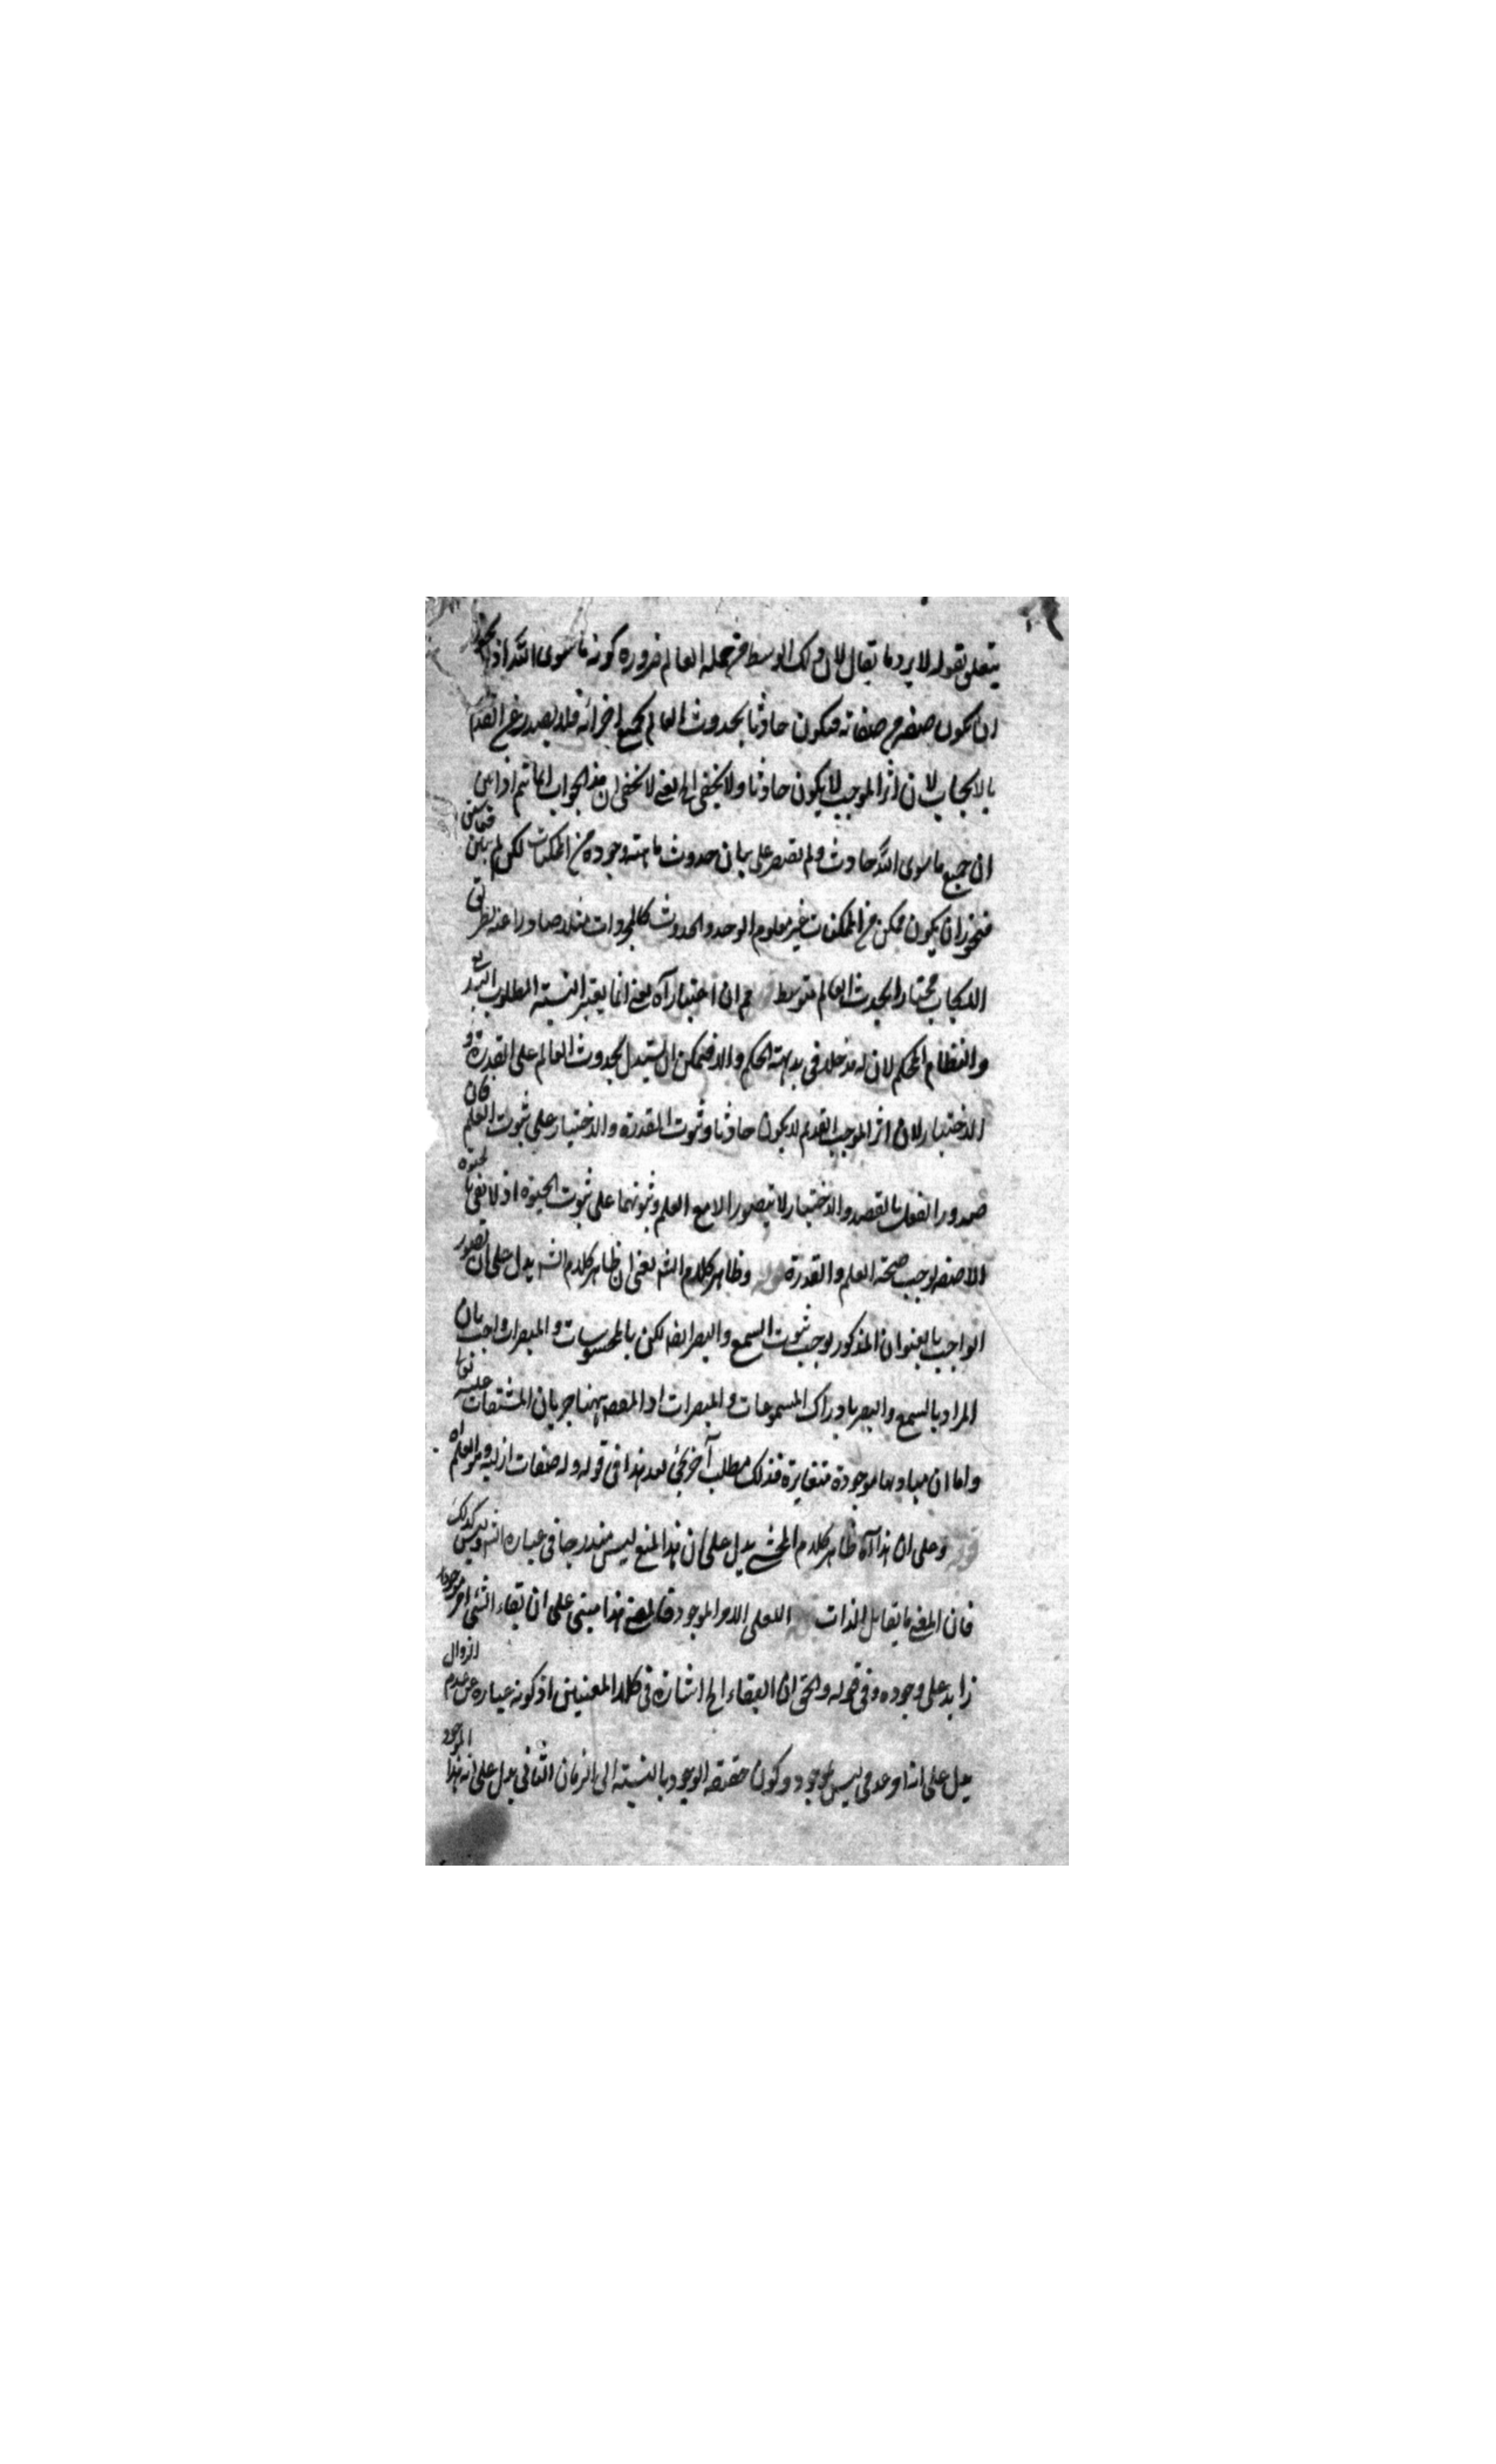 يتعلق بقوله لا يرد ما يقال لان ذلك الوسط من جملة العالم ضرورة كونه ما سوى الله اذ لا يجوز
ان يكون صفة من صفاته فيكون حادثا بحدوث العالم بجميع اجزائه فلا يصدر عن القديم
بالايجاب لان اثر الموجب لا يكون حادثا ولا يخفى الخ يعنى لا يخفى ان هذا الجواب انما يتم اذا بين
ان جميع ما سوى الله حادث ولم يقتصر على بيان حدوث ما ثبت وجوده من الممكنات لكن لم يبين
فيجوز ان يكون ممكن من الممكنات غير معلوم الوجود والحدوث كالمجردات مثلا صادرا عنه بطريق
الايجاب مختارا يحدث العالم بتوسطه ان اعتبار آه يعنى انما يعتبر النسبة المطلوب البديع
والنظام المحكم لان له مدخلا فى بداهة الحكم والا فيمكن ان يستدل بحدوث العالم على القدرة و
الاختيار لان اثر الموجب القديم لا يكون حادثا وثبوت القدرة والاختيار على ثبوت العلم فان
صدور الفعل بالقصد والاختيار لا يتصور الا مع العلم وثبوتهما على ثبوت الحيوة اذ لا نعنى بالحيوة
الا صفة توجب صحة العلم والقدرة قوله وظاهر كلام الشه يعنى ان ظاهر كلام الشه يدل على ان تصور
الواجب بالعنوان المذكور يوجب ثبوت السمع والبصر ايضا لكن بالمحسوسات والمبصرات واجيب بان
المراد بالسمع والبصر ادراك المسموعات والمبصرات اذ المقصد ههنا جريان المشتقات عليه تعالى
واما ان مباديها موجودة متغايرة فذلك مطلب آخر يجئ بعد هذا فى قوله وله صفات ازلية وهو العلم آه
قوله وعلى ان هذا آه ظاهر كلام المحشى يدل على ان هذا المنع ليس مندرجا فى عبارة الشه وليس كذلك
فان المعنى ما يقابل الذات قوله الامر الموجود هذا مبنى على ان بقاء الشئ امر موجود
زايد على وجوده وفى قوله والحق ان البقاء الخ اشارة فى كلا المعنيين اذ كونه عبارة عن عدم الزوال
يدل على انه امر عدمى ليس بموجود وكون حقيقته الوجود بالنسبة الى الزمان الثانى يدل على انه هذا الوجود